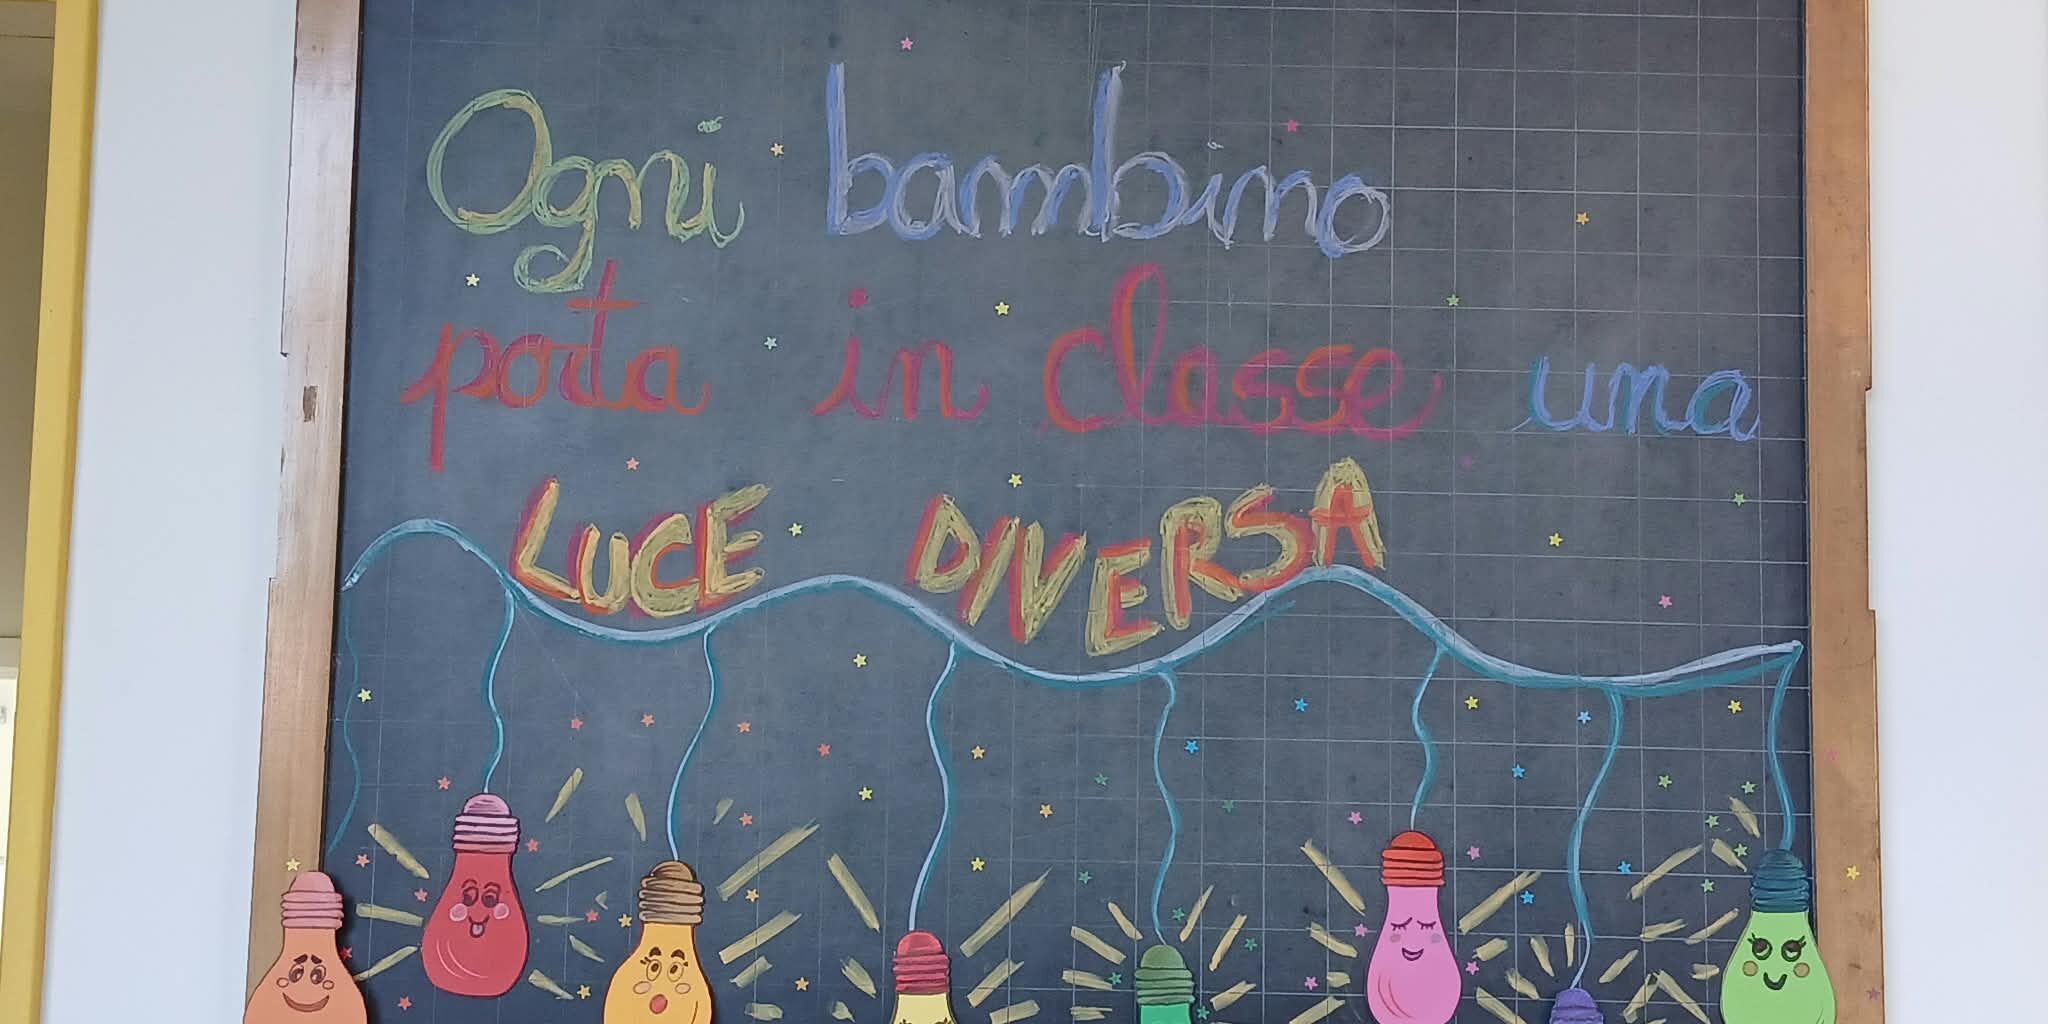 Ogni bambino
porta in classe una
LUCE DIVERSA